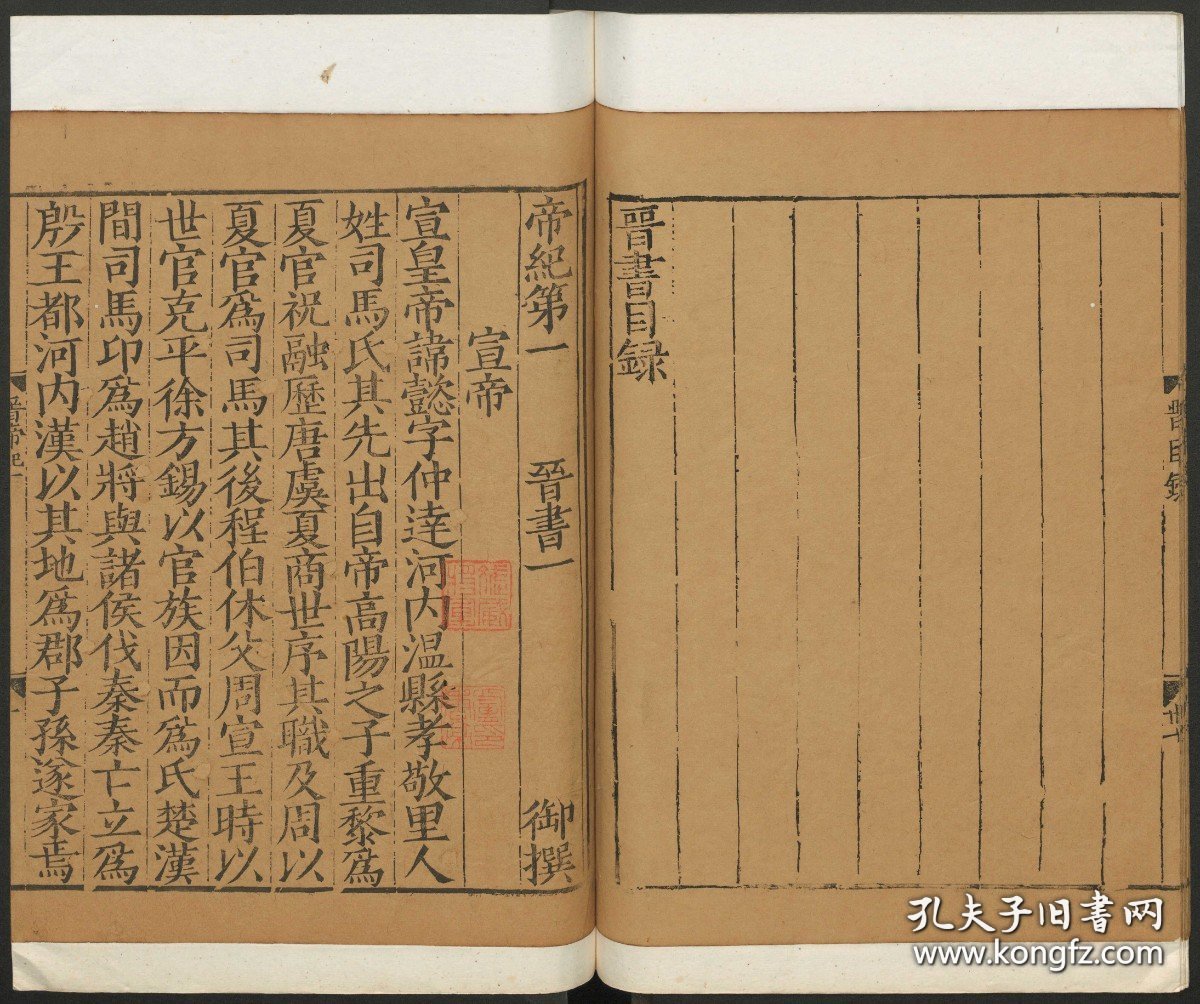 晉書目録
晉目録
廿一
帝紀第一 晉書一 御撰
宣帝
宣皇帝諱懿字仲達河内温縣孝敬里人
姓司馬氏其先出自帝高陽之子重黎爲
夏官祝融歷唐虞夏商世序其職及周以
夏官爲司馬其後程伯休父周宣王時以
世官克平徐方錫以官族因而爲氏楚漢
間司馬卬爲趙將與諸侯伐秦秦亡立爲
殷王都河内漢以其地爲郡子孫遂家焉
晉帝紀一
一
孔夫子旧书网
www.kongfz.com